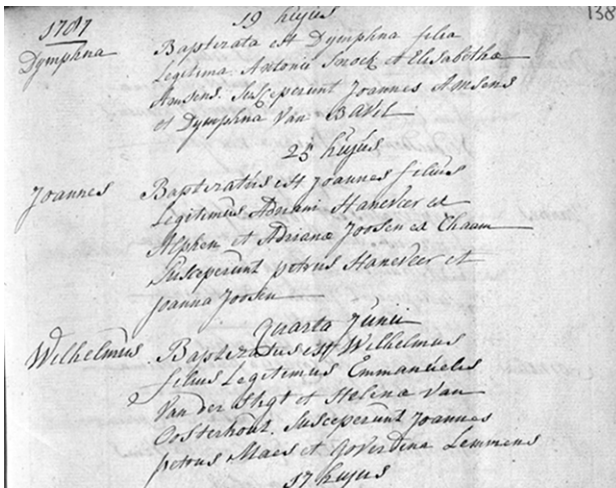 19 hujus
138
1787
Dymphna
Baptizata est Dymphna filia
Legitima Antonii Snoek et Elisabetha
Amsens. Susceperunt Joannes Amsens
et Dymphna Van BAVEL
25 hujus
Joannes
Baptizatus est Joannes filius
Legitimus Adriani Haneveer ex
Alphen et Adrianæ Joosen ex Chaam
Susceperunt petrus Haneveer et
Joanna Joosen
quarta Junii
Wilhelmus
Baptizatus est Wilhelmus
filius Legitimus Emmanuelis
Van der et Helena Van
Oosterhout. Susceperunt Joannes
petrus Maes et Goverdina Lemmens
17 hujus